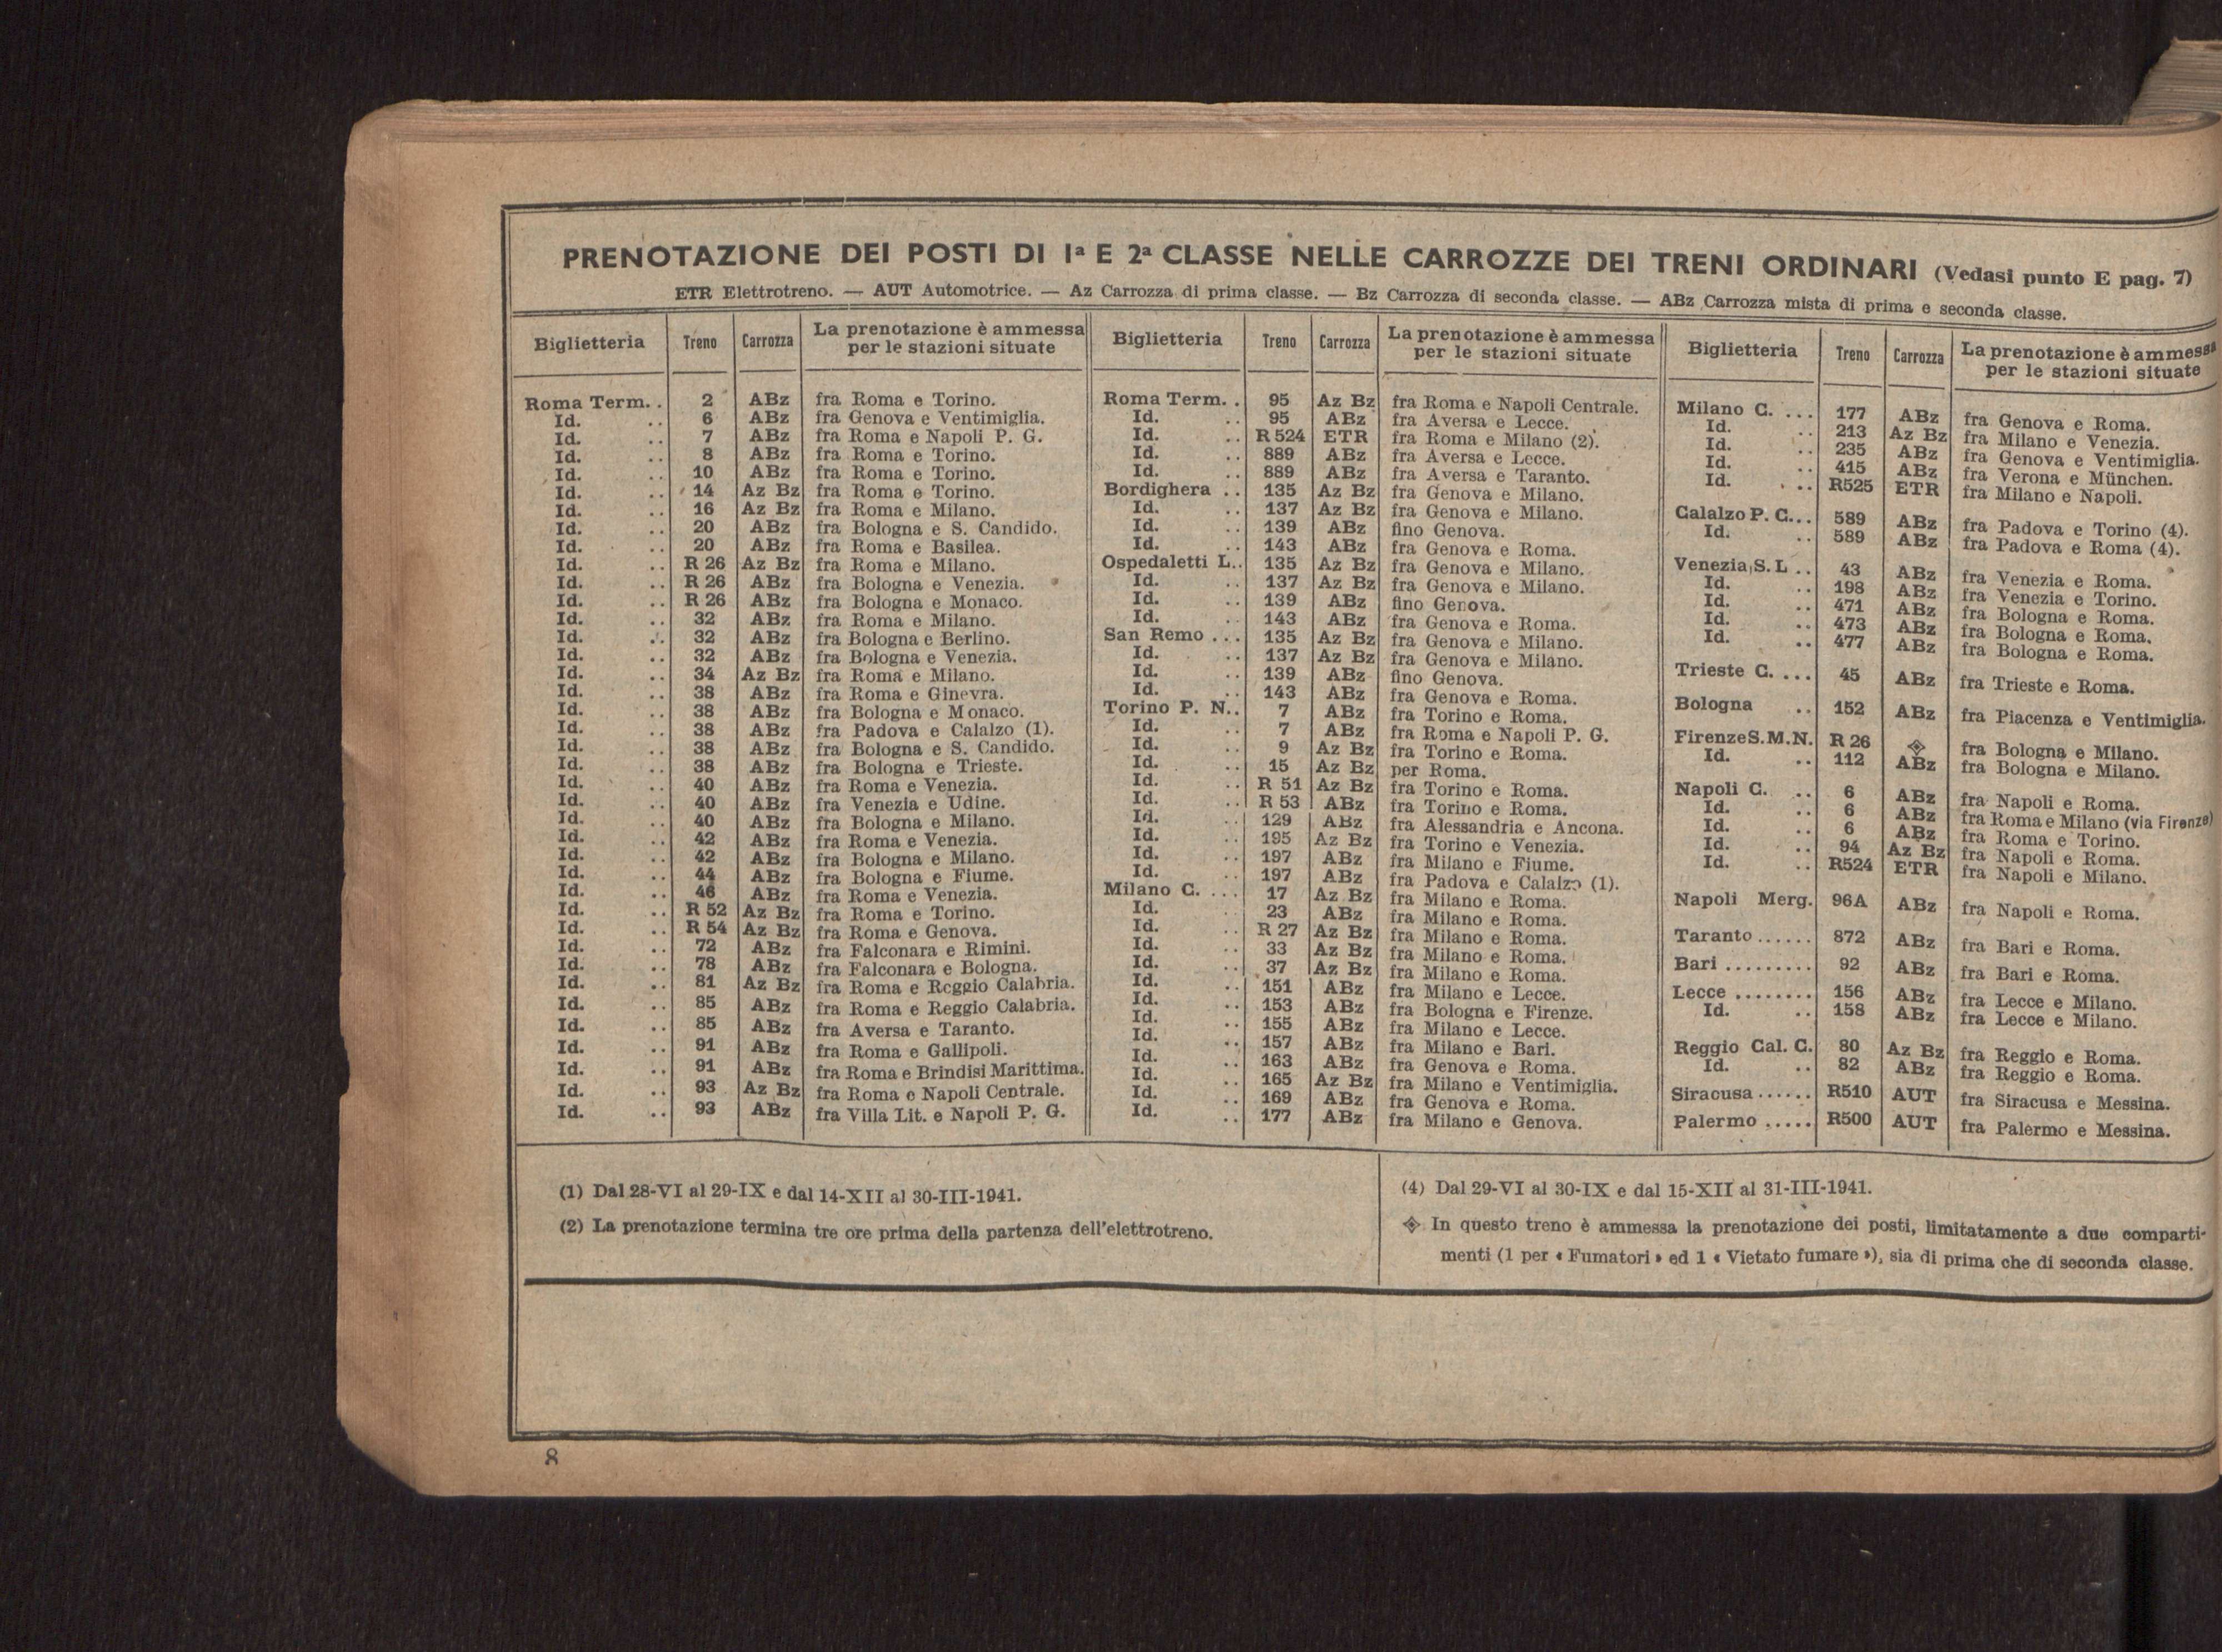 PRENOTAZIONE DEI POSTI DI 1ª E 2ª CLASSE NELLE CARROZZE DEI TRENI ORDINARI (Vedasi punto E pag. 7)
ETR Elettrotreno. — AUT Automotrice. — Az Carrozza di prima classe. — Bz Carrozza di seconda classe. — ABz Carrozza mista di prima e seconda classe.
Biglietteria Treno Carrozza La prenotazione è ammessa per le stazioni situate
Roma Term. . 2 ABz fra Roma e Torino.
Id. . . 6 ABz fra Genova e Ventimiglia.
Id. . . 7 ABz fra Roma e Napoli P. G.
Id. . . 8 ABz fra Roma e Torino.
Id. . . 10 ABz fra Roma e Torino.
Id. . . 14 Az Bz fra Roma e Torino.
Id. . . 16 Az Bz fra Roma e Milano.
Id. . . 20 ABz fra Bologna e S. Candido.
Id. . . 20 ABz fra Roma e Basilea.
Id. . . R 26 Az Bz fra Roma e Milano.
Id. . . R 26 ABz fra Bologna e Venezia.
Id. . . R 26 ABz fra Bologna e Monaco.
Id. . . 32 ABz fra Roma e Milano.
Id. . . 32 ABz fra Bologna e Berlino.
Id. . . 32 ABz fra Bologna e Venezia.
Id. . . 34 Az Bz fra Roma e Milano.
Id. . . 38 ABz fra Roma e Ginevra.
Id. . . 38 ABz fra Bologna e Monaco.
Id. . . 38 ABz fra Padova e Calalzo (1).
Id. . . 38 ABz fra Bologna e S. Candido.
Id. . . 38 ABz fra Bologna e Trieste.
Id. . . 40 ABz fra Roma e Venezia.
Id. . . 40 ABz fra Venezia e Udine.
Id. . . 40 ABz fra Bologna e Milano.
Id. . . 42 ABz fra Roma e Venezia.
Id. . . 42 ABz fra Bologna e Milano.
Id. . . 44 ABz fra Bologna e Fiume.
Id. . . 46 ABz fra Roma e Venezia.
Id. . . R 52 Az Bz fra Roma e Torino.
Id. . . R 54 Az Bz fra Roma e Genova.
Id. . . 72 ABz fra Falconara e Rimini.
Id. . . 78 ABz fra Falconara e Bologna.
Id. . . 81 Az Bz fra Roma e Reggio Calabria.
Id. . . 85 ABz fra Roma e Reggio Calabria.
Id. . . 85 ABz fra Aversa e Taranto.
Id. . . 91 ABz fra Roma e Gallipoli.
Id. . . 91 ABz fra Roma e Brindisi Marittima.
Id. . . 93 Az Bz fra Roma e Napoli Centrale.
Id. . . 93 ABz fra Villa Lit. e Napoli P. G.
Biglietteria Treno Carrozza La prenotazione è ammessa per le stazioni situate
Roma Term. . 95 Az Bz fra Roma e Napoli Centrale.
Id. . . 95 ABz fra Aversa e Lecce.
Id. . . R 524 ETR fra Roma e Milano (2).
Id. . . 889 ABz fra Aversa e Lecce.
Id. . . 889 ABz fra Aversa e Taranto.
Bordighera . . 135 Az Bz fra Genova e Milano.
Id. . . 137 Az Bz fra Genova e Milano.
Id. . . 139 ABz fino Genova.
Id. . . 143 ABz fra Genova e Roma.
Ospedaletti L. . 135 Az Bz fra Genova e Milano.
Id. . . 137 Az Bz fra Genova e Milano.
Id. . . 139 ABz fino Genova.
Id. . . 143 ABz fra Genova e Roma.
San Remo . . . 135 Az Bz fra Genova e Milano.
Id. . . 137 Az Bz fra Genova e Milano.
Id. . . 139 ABz fino Genova.
Id. . . 143 ABz fra Genova e Roma.
Torino P. N. . 7 ABz fra Torino e Roma.
Id. . . 7 ABz fra Roma e Napoli P. G.
Id. . . 9 Az Bz fra Torino e Roma.
Id. . . 15 Az Bz per Roma.
Id. . . R 51 Az Bz fra Torino e Roma.
Id. . . R 53 ABz fra Torino e Roma.
Id. . . 129 ABz fra Alessandria e Ancona.
Id. . . 195 Az Bz fra Torino e Venezia.
Id. . . 197 ABz fra Milano e Fiume.
Id. . . 197 ABz fra Padova e Calalzo (1).
Milano C. . . . 17 Az Bz fra Milano e Roma.
Id. . . 23 ABz fra Milano e Roma.
Id. . . R 27 Az Bz fra Milano e Roma.
Id. . . 33 Az Bz fra Milano e Roma.
Id. . . 37 Az Bz fra Milano e Roma.
Id. . . 151 ABz fra Milano e Lecce.
Id. . . 153 ABz fra Bologna e Firenze.
Id. . . 155 ABz fra Milano e Lecce.
Id. . . 157 ABz fra Milano e Bari.
Id. . . 163 ABz fra Genova e Roma.
Id. . . 165 Az Bz fra Milano e Ventimiglia.
Id. . . 169 ABz fra Genova e Roma.
Id. . . 177 ABz fra Milano e Genova.
Biglietteria Treno Carrozza La prenotazione è ammessa per le stazioni situate
Milano C. . . . 177 ABz fra Genova e Roma.
Id. . . 213 Az Bz fra Milano e Venezia.
Id. . . 235 ABz fra Genova e Ventimiglia.
Id. . . 415 ABz fra Verona e München.
Id. . . R525 ETR fra Milano e Napoli.
Calalzo P. C. . . 589 ABz fra Padova e Torino (4).
Id. . . 589 ABz fra Padova e Roma (4).
Venezia S. L . . 43 ABz fra Venezia e Roma.
Id. . . 198 ABz fra Venezia e Torino.
Id. . . 471 ABz fra Bologna e Roma.
Id. . . 473 ABz fra Bologna e Roma.
Id. . . 477 ABz fra Bologna e Roma.
Trieste C. . . . 45 ABz fra Trieste e Roma.
Bologna . . 152 ABz fra Piacenza e Ventimiglia.
Firenze S.M.N. R 26 ⟡ fra Bologna e Milano.
Id. . . 112 ABz fra Bologna e Milano.
Napoli C. . . 6 ABz fra Napoli e Roma.
Id. . . 6 ABz fra Roma e Milano (via Firenze)
Id. . . 6 ABz fra Roma e Torino.
Id. . . 94 Az Bz fra Napoli e Roma.
Id. . . R524 ETR fra Napoli e Milano.
Napoli Merg. 96A ABz fra Napoli e Roma.
Taranto . . . . . . 872 ABz fra Bari e Roma.
Bari . . . . . . . . . 92 ABz fra Bari e Roma.
Lecce . . . . . . . . 156 ABz fra Lecce e Milano.
Id. . . 158 ABz fra Lecce e Milano.
Reggio Cal. C. 80 Az Bz fra Reggio e Roma.
Id. . . 82 ABz fra Reggio e Roma.
Siracusa . . . . . . R510 AUT fra Siracusa e Messina.
Palermo . . . . . R500 AUT fra Palermo e Messina.
(1) Dal 28-VI al 29-IX e dal 14-XII al 30-III-1941.
(2) La prenotazione termina tre ore prima della partenza dell'elettrotreno.
(4) Dal 29-VI al 30-IX e dal 15-XII al 31-III-1941.
⟡ In questo treno è ammessa la prenotazione dei posti, limitatamente a due comparti-
menti (1 per « Fumatori » ed 1 « Vietato fumare »), sia di prima che di seconda classe.
8